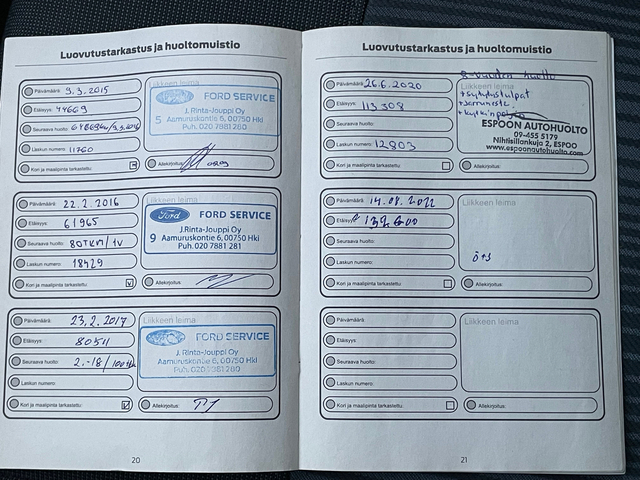 Luovutustarkastus ja huoltomuistio
Päivämäärä: 9.3.2015
Etäisyys: 44669
Seuraava huolto:
Laskun numero: 11760
Kori ja maalipinta tarkastettu:
Liikkeen leima
Ford FORD SERVICE
5 J.Rinta-Jouppi Oy
Aamuruskontie 6, 00750 Hki
Puh. 020 7881 280
Allekirjoitus:
Päivämäärä: 22.2.2016
Etäisyys: 61965
Seuraava huolto: 80TKM/1V
Laskun numero: 18429
Kori ja maalipinta tarkastettu: V
Ford FORD SERVICE
9 J.Rinta-Jouppi Oy
Aamuruskontie 6, 00750 Hki
Puh. 020 7881 281
Allekirjoitus:
Päivämäärä: 23.2.2017
Etäisyys: 80511
Seuraava huolto: 2.-18/100tkm
Laskun numero:
Kori ja maalipinta tarkastettu: V
Liikkeen leima
FORD SERVICE
J. Rinta-Jouppi Oy
Aamuruskontie 6, 00750 Hki
Puh. 020 7881 280
Allekirjoitus:
20
Luovutustarkastus ja huoltomuistio
Päivämäärä: 26.6.2020
Etäisyys: 113308
Seuraava huolto:
Laskun numero: 12803
Kori ja maalipinta tarkastettu:
8-vuoden huolto
Liikkeen leima
+sytytystulpat
+jarruneste
ESPOON AUTOHUOLTO
09-455 5179
Nihtisillankuja 2, ESPOO
www.espoonautohuolto.com
Allekirjoitus:
Päivämäärä: 14.08.2022
Etäisyys:
Seuraava huolto:
Laskun numero:
Kori ja maalipinta tarkastettu:
Liikkeen leima
ö+s
Allekirjoitus:
Päivämäärä:
Etäisyys:
Seuraava huolto:
Laskun numero:
Kori ja maalipinta tarkastettu:
Liikkeen leima
Allekirjoitus:
21